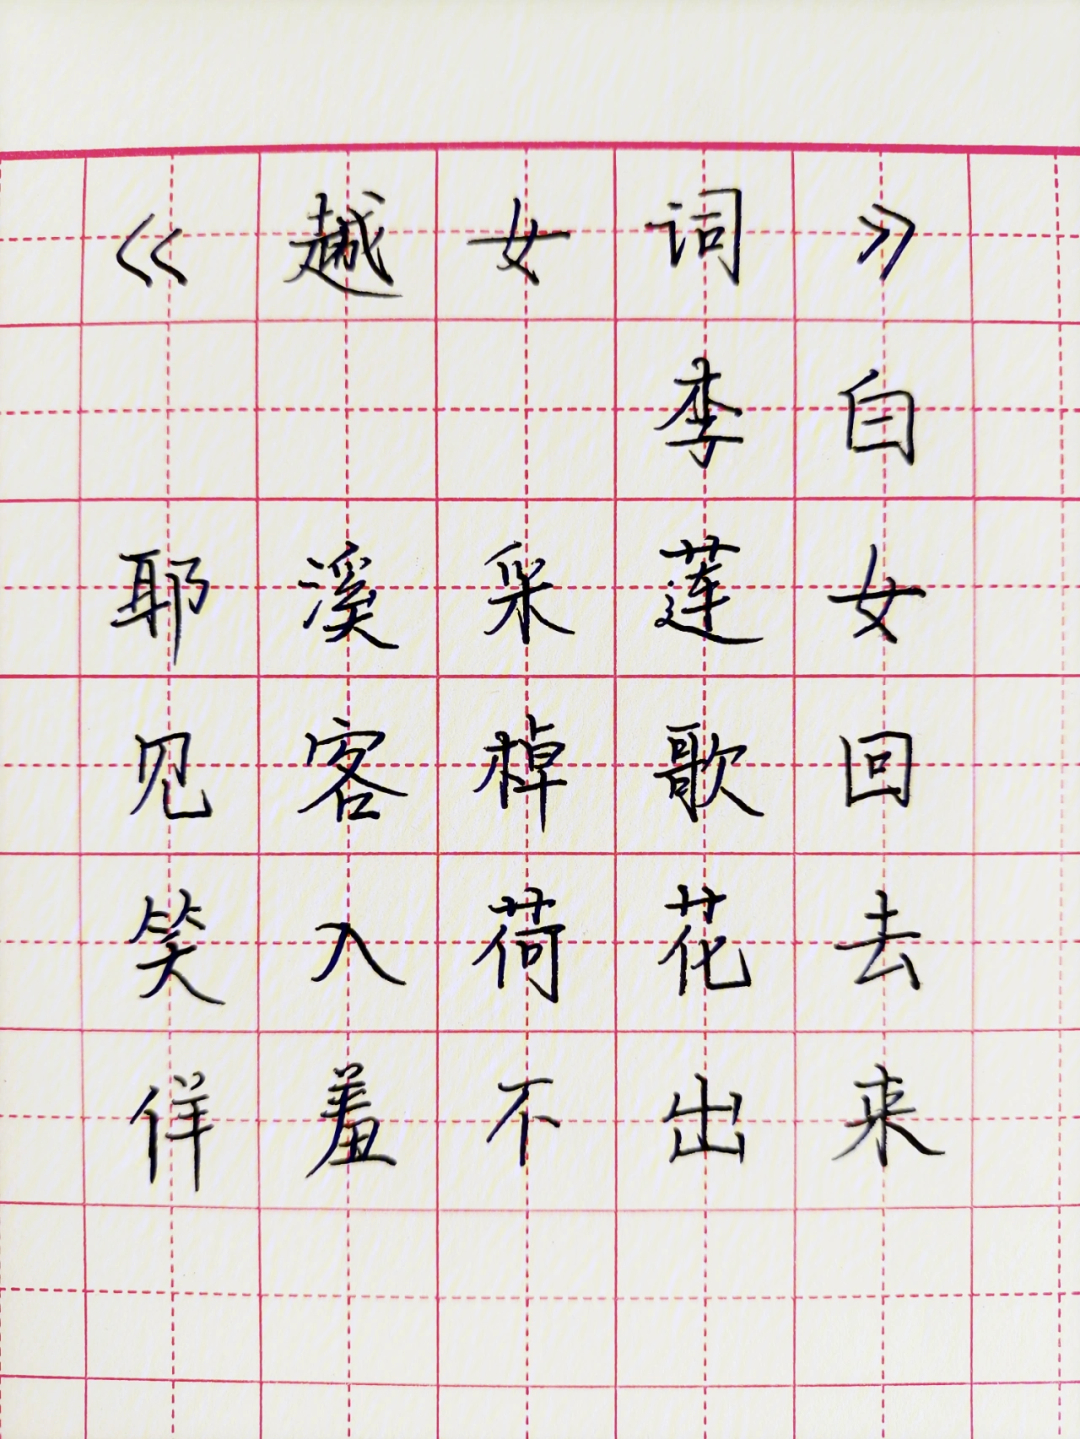 《越女词》
李白
耶溪采莲女
见客棹歌回
笑入荷花去
佯羞不出来